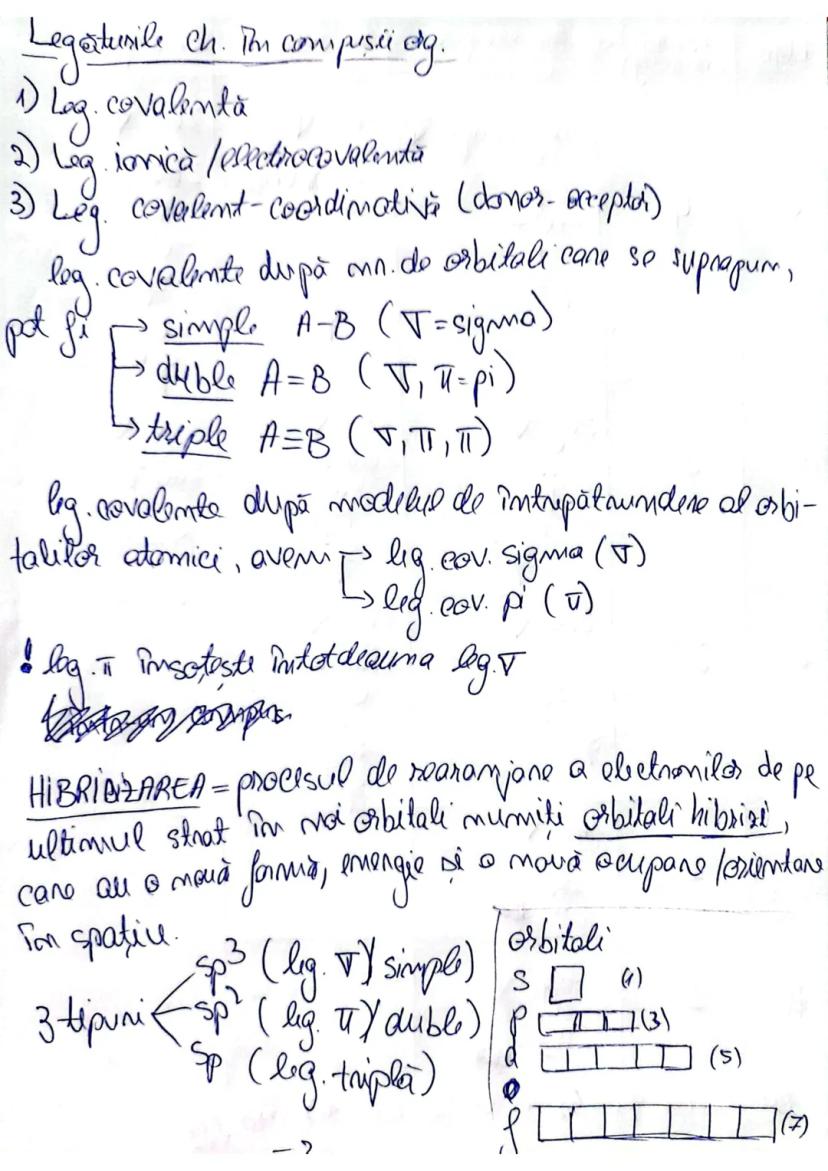 Legăturile ch. în compușii org.
1) Leg. covalentă
2) Leg. ionică / electrocovalentă
3) Leg. covalent-coordinativă (donor-acceptor)
leg. covalente după nr. de orbitali care se suprapun,
pot fi → simple A-B (σ=sigma)
→ duble A=B (σ, π=pi)
→ triple A≡B (σ, π, π)
leg. covalente după modelul de întrepătrundere al orbi-
talilor atomici, avem → leg. cov. sigma (σ)
→ leg. cov. pi (π)
! leg. π însoțește întotdeauna leg. σ
HIBRIDIZAREA = procesul de rearanjare a electronilor de pe
ultimul strat în noi orbitali numiți orbitali hibrizi,
care au o nouă formă, energie și o nouă ocupare/orientare
în spațiu.
3 tipuri
sp³ (leg. σ / simple)
sp² (leg. π / duble)
sp (leg. triplă)
orbitali
s (1)
p (3)
d (5)
f (7)